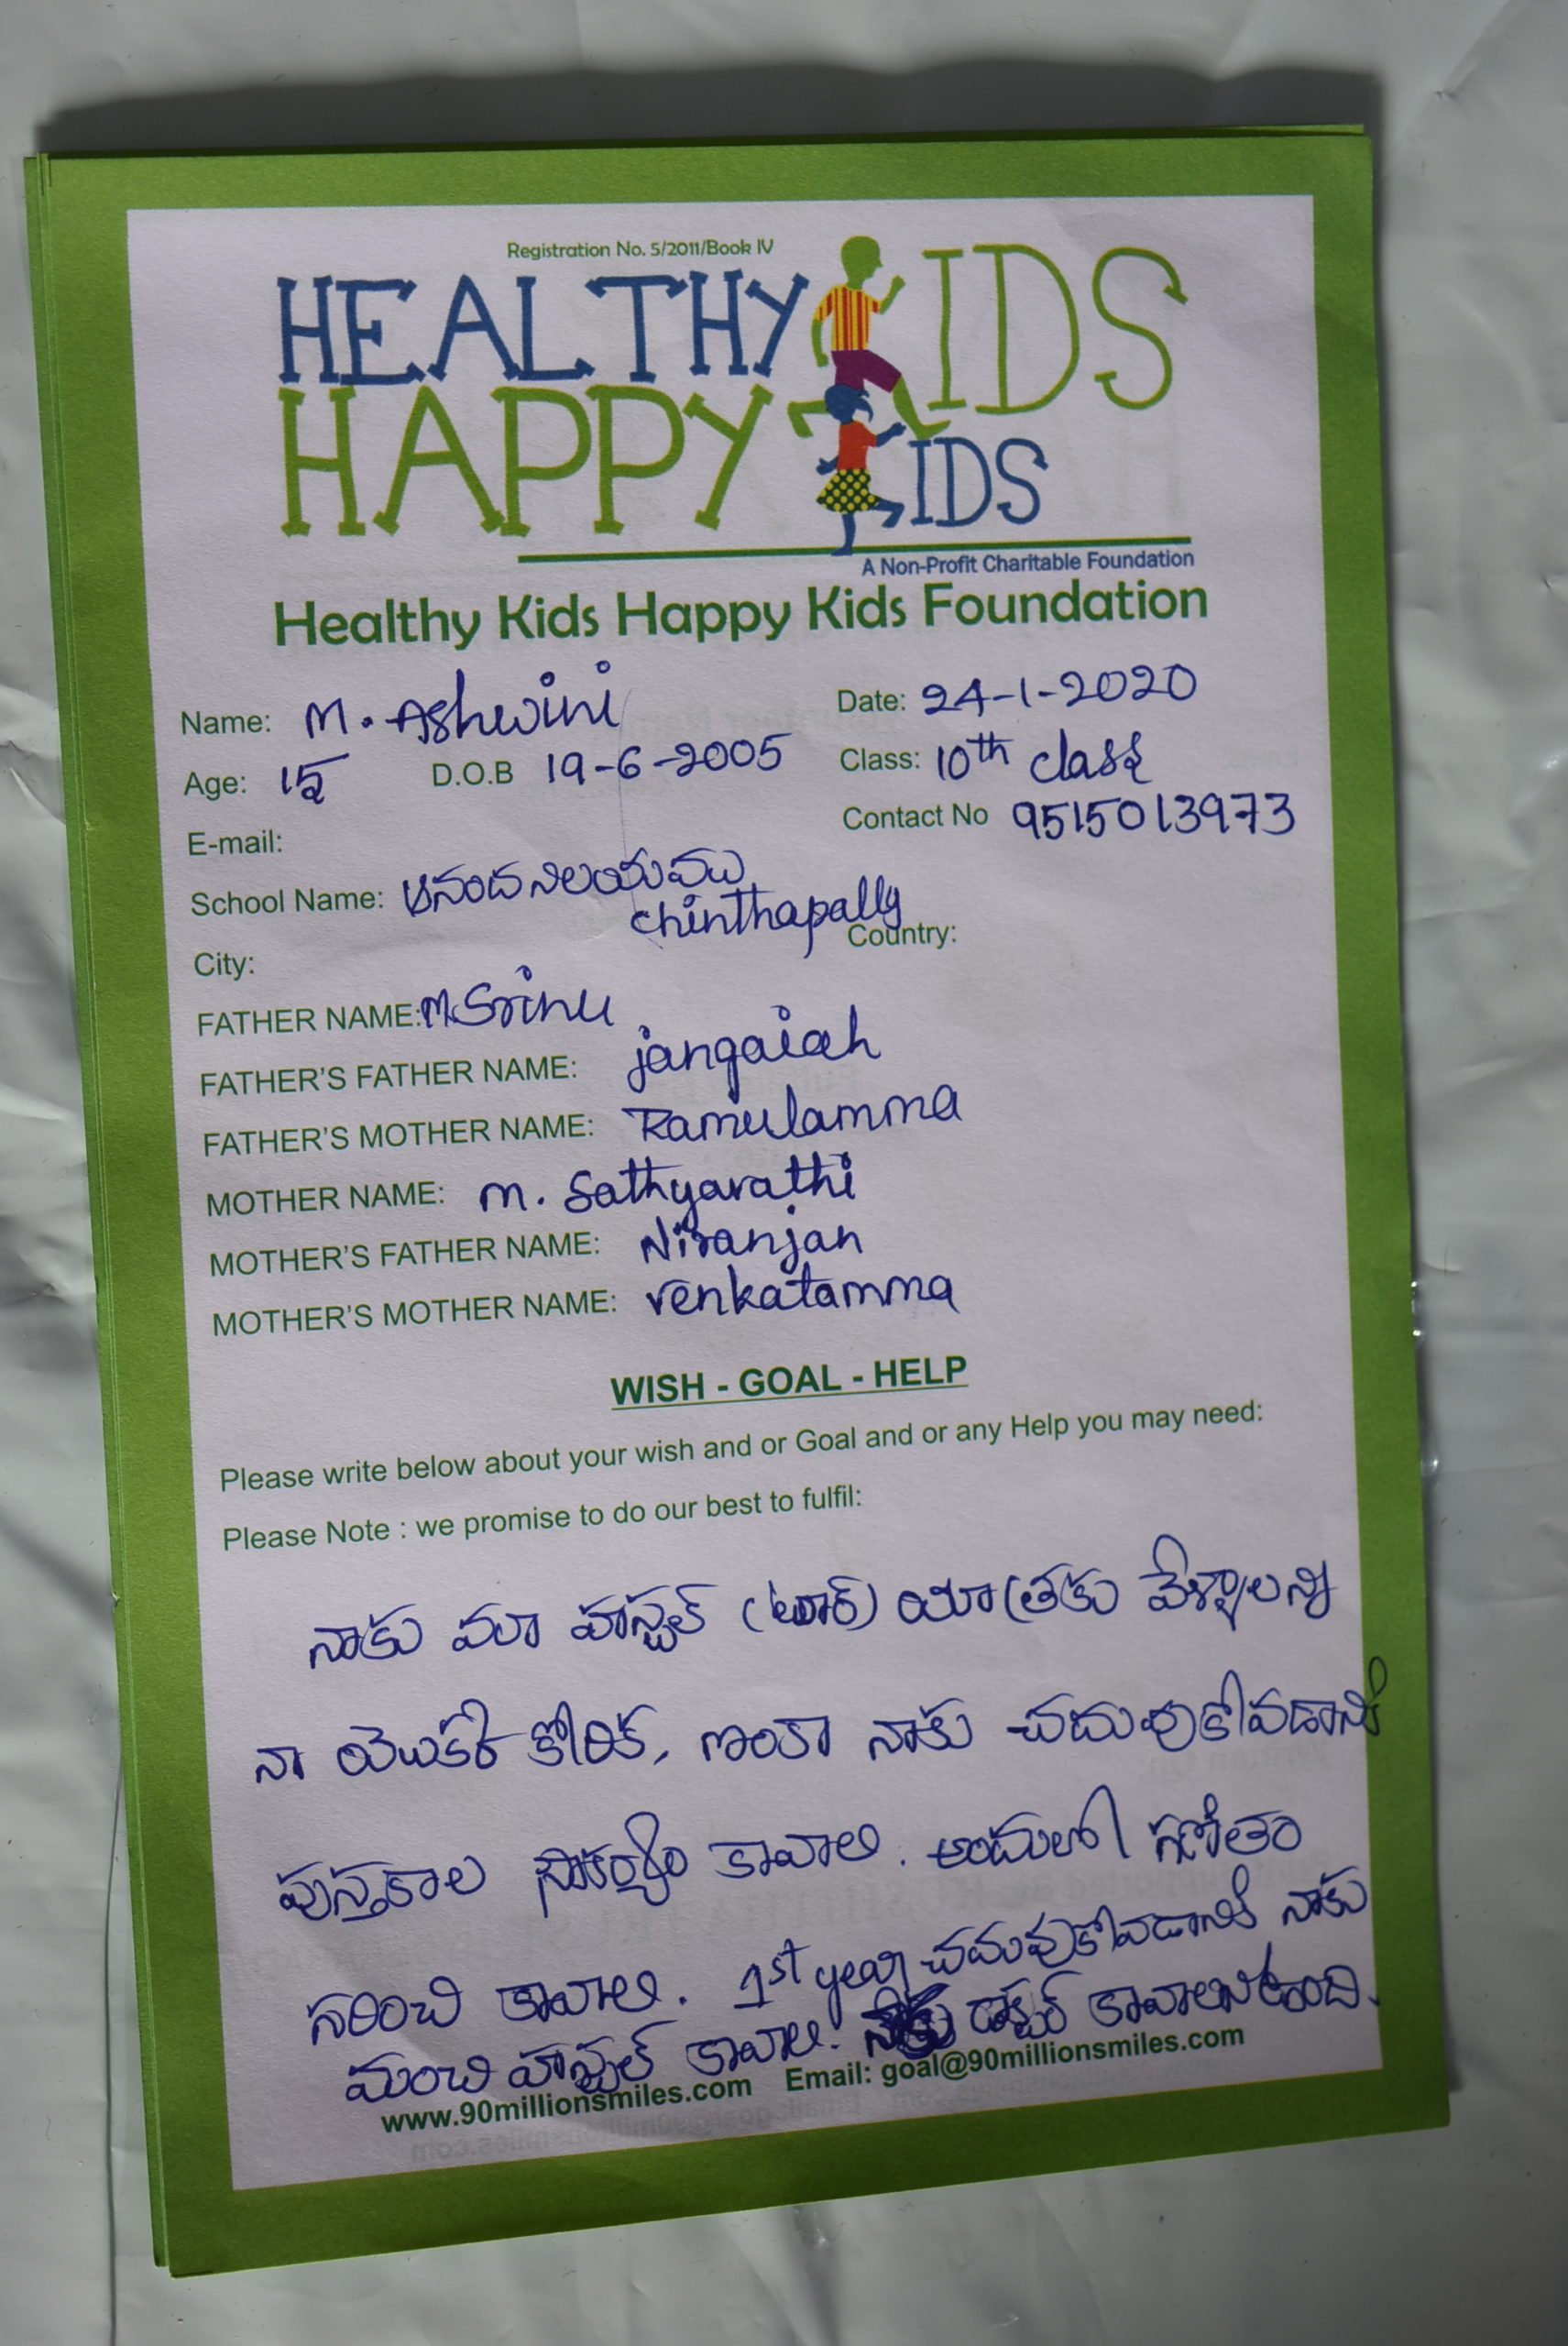 Registration No. 5/2011/Book IV
HEALTHY KIDS
HAPPY KIDS
A Non-Profit Charitable Foundation
Healthy Kids Happy Kids Foundation
Name: M. Ashwini Date: 24-1-2020
Age: 15 D.O.B 19-6-2005 Class: 10th class
E-mail: Contact No 9515013973
School Name: ఆనంద నిలయము
chinthapally
City: Country:
FATHER NAME: M. Srinu
FATHER'S FATHER NAME: jangaiah
FATHER'S MOTHER NAME: Ramulamma
MOTHER NAME: M. Sathyavathi
MOTHER'S FATHER NAME: Niranjan
MOTHER'S MOTHER NAME: venkatamma
WISH - GOAL - HELP
Please write below about your wish and or Goal and or any Help you may need:
Please Note : we promise to do our best to fulfil:
నాకు మా హస్టల్ (టూర్) యాత్రకు వేళ్ళాలన్ని
నా యొక్క కోరిక, ఇంకా నాకు చదువుకోవడానికి
పుస్తకాల సౌకర్యం కావాలి. అందులో గణితం
గురించి కావాలి. 1st year చదువుకోవడానికి నాకు
మంచి హస్టల్ కావాలి. డాక్టర్ కావాలని ఉంది.
www.90millionsmiles.com Email: goal@90millionsmiles.com